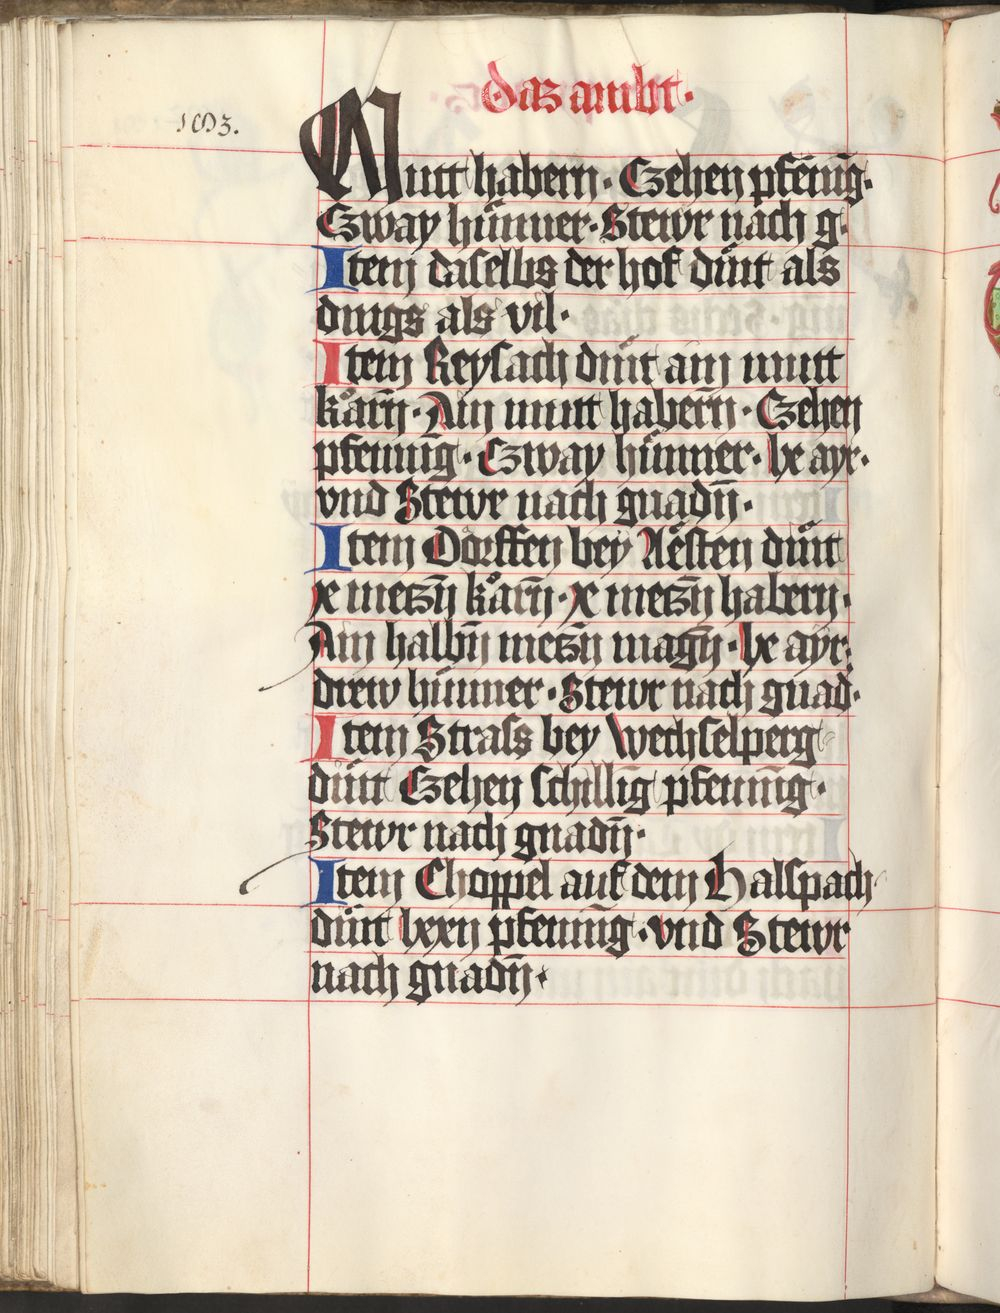 ·das ambt·
Mutt habern · Czehen pfēnīg·
Czway hüner · Stewr nach g·
Item daselbs der hof dint als
dings als vil ·
Item Reysach dint ain mutt
kårn̄ · Ain mutt habern̄ · Czehen
pfennīg · Czway hünner · lx ayr ·
vnd Stewr nach gnadn̄ ·
Item Dorffen bey Aësten dint
x metzn̄ kårn̄ · x metzn̄ habern ·
Ain halbn̄ metzn̄ magn̄ · lx ayr ·
drew hünner · Stewr nach gnad·
Item Strass bey Wechselperg
dint Czehen schillīg pfennīg ·
Stewr nach gnadn̄ ·
Item Choppel auf dem Halspach
dint lxxij pfennīg · vnd Stewr
nach gnadn̄ ·